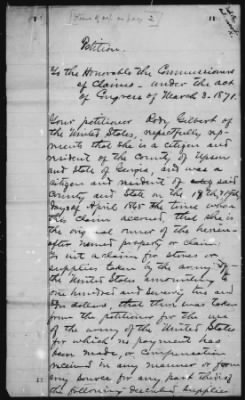 Petition.
To the Honorable the Commissioners
of Claims - under the act
of Congress of March 3. 1871.
Your petitioner Rody Gilbert of
the United States, respectfully rep-
resents that she is a citizen and
resident of the County of Upson
and State of Georgia, and was a
citizen and resident of said
County and State on the 18th
day of April 1865 the time when
this claim accrued, that she is
the original owner of the herein-
after named property or claim.
is not a claim for stores or
supplies taken by the army of
the United States amounting to
one hundred and seventy two and
dollars, that there was taken
from the petitioner for the use
of the army of the United States
for which no payment has
been made, or compensation
received in any manner or from
any source for any part thereof
the following described supplies